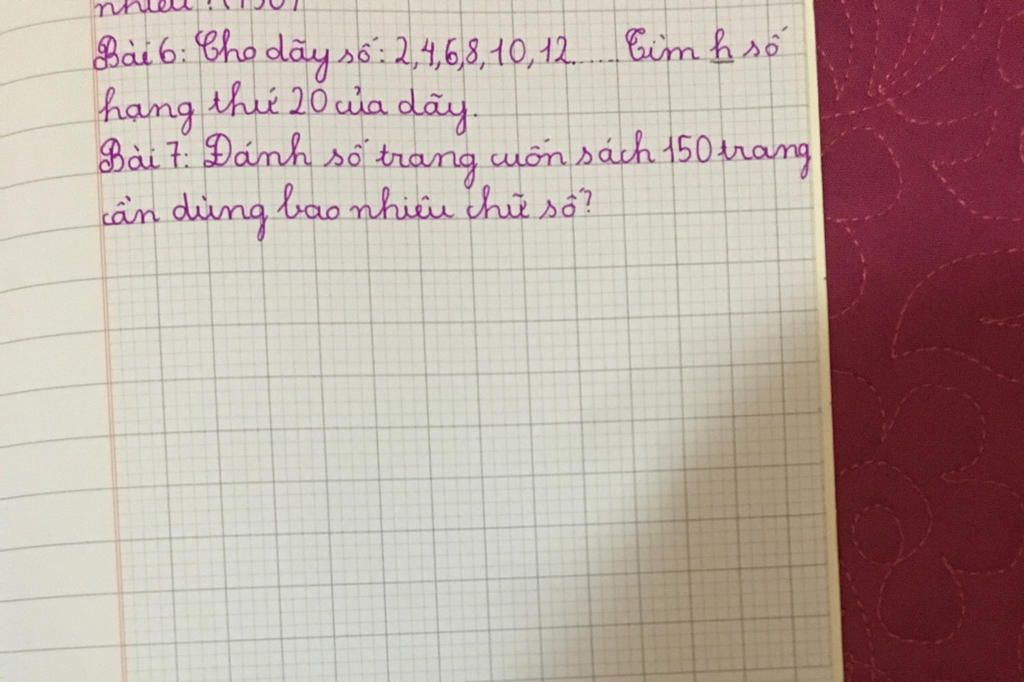 nhiêu? (150)
Bài 6: Cho dãy số: 2,4,6,8,10,12..... Tìm h số
hạng thứ 20 của dãy.
Bài 7: Đánh số trang cuốn sách 150 trang
cần dùng bao nhiêu chữ số?